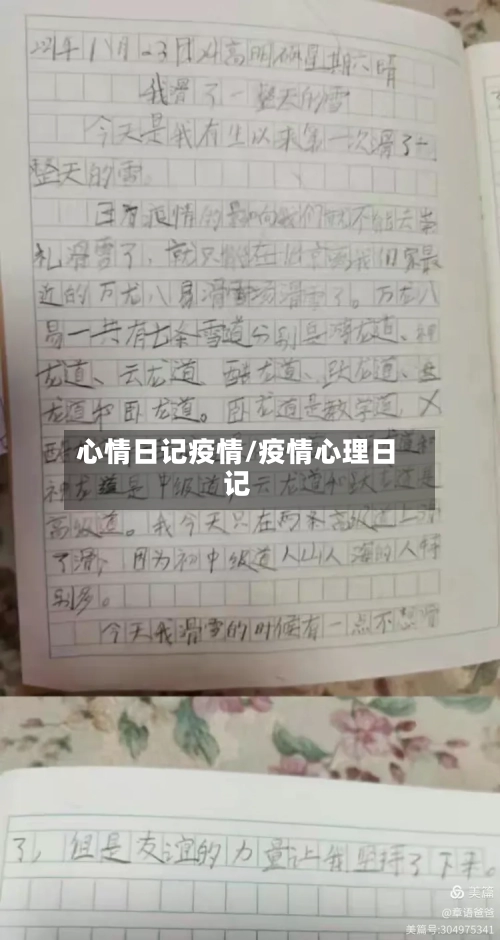 我滑了一整天的雪
今天是我有生以来第一次滑了一
整天的雪。
因为疫情的影响我们就不能去崇
礼滑雪了，就只能在北京离我们家最
近的万龙八易滑雪场滑雪了。万龙八
易一共有七条雪道分别是海龙道、神
龙道、云龙道 酷龙道、跃龙道、
龙道和卧龙道。卧龙道是教学道，
心情日记疫情/疫情心理日
记
神龙道是中级道，云龙道和跃龙道是
高级道。我今天只在两条高级道上滑
了滑，因为初中级道人山人海的人特
别多。
今天我滑雪的时候有一点不想滑
了，但是友谊的力量让我坚持了下来。
美篇
@章语爸爸
美篇号:304975341